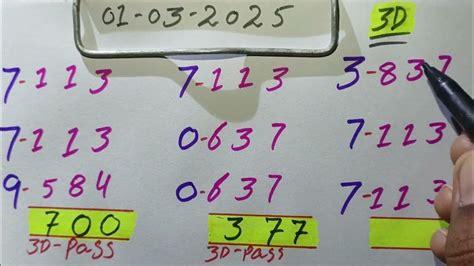 01-03-2025 3D
7-113 7-113 3-837
7-113 0-637 7-113
9-584 0-637 7-113
700 377
3D-Pass 3D-Pass